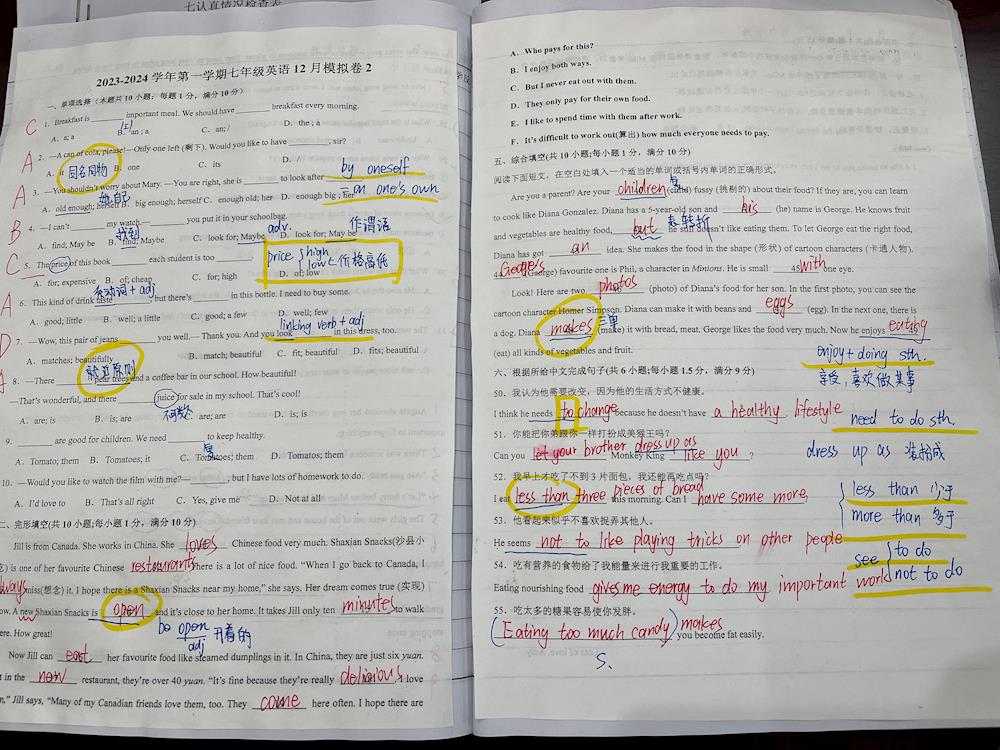 七认真情况检查表
2023-2024 学年第一学期七年级英语 12 月模拟卷 2
一、单项选择（本题共 10 小题；每题 1 分，满分 10 分）
C 1. Breakfast is ______ important meal. We should have ______ breakfast every morning.
A. a; a B. an ; a C. an; / D. the ; a
A 2. —A can of cola, please!—Only one left (剩下). Would you like to have ______, sir?
A. it 同名同物 B. one C. its D. /
by oneself
A 3. —You shouldn't worry about Mary. —You are right, she is ______ to look after ______
=on one's own
A. old enough; herself B. big enough; herself C. enough old; her D. enough big ; her
她自己
B 4. —I can't ______ my watch.— ______ you put it in your schoolbag.
找到 adv. 作谓语
A. find; May be B. find; Maybe C. look for; Maybe D. look for; May be
C 5. The price of this book ______ each student is too ______.
price { high low 价格高低
A. for; expensive B. of; cheap C. for; high D. of; low
系动词 + adj
A 6. This kind of drink taste ______ but there's ______ in this bottle. I need to buy some.
A. good; little B. well; a little C. good; a few D. well; few
linking verb + adj
D 7. —Wow, this pair of jeans ______ you well.— Thank you. And you look ______ in this dress, too.
A. matches; beautifully B. match; beautiful C. fit; beautiful D. fits; beautiful
就近原则
8. —There ______ pear trees and a coffee bar in our school. How beautiful!
—That's wonderful, and there ______ juice for sale in my school. That's cool!
不可数
A. are; is B. is; are C. are; are D. is; is
9. ______ are good for children. We need ______ to keep healthy.
A. Tomato; them B. Tomatoes; it C. Tomatoes; them D. Tomatos; them
10. —Would you like to watch the film with me?— ______, but I have lots of homework to do.
A. I'd love to B. That's all right C. Yes, give me D. Not at all
二、完形填空(共 10 小题;每小题 1 分，满分 10 分)
Jill is from Canada. She works in China. She loves Chinese food very much. Shaxian Snacks(沙县小
吃) is one of her favourite Chinese restaurants. There is a lot of nice food. “When I go back to Canada, I
always miss(想念) it. I hope there is a Shaxian Snacks near my home,” she says. Her dream comes true (实现)
now. A new Shaxian Snacks is open and it's close to her home. It takes Jill only ten minutes to walk
there. How great!
be open 开着的
adj
Now Jill can eat her favourite food like steamed dumplings in it. In China, they are just six yuan.
in the new restaurant, they're over 40 yuan. “It's fine because they're really delicious. I love
” Jill says, “Many of my Canadian friends love them, too. They come here often. I hope there are
A. Who pays for this?
B. I enjoy both ways.
C. But I never eat out with them.
D. They only pay for their own food.
E. I like to spend time with them after work.
F. It's difficult to work out(算出) how much everyone needs to pay.
五、综合填空(共 10 小题;每小题 1 分，满分 10 分)
阅读下面短文，在空白处填入一个适当的单词或括号内单词的正确形式。
Are you a parent? Are your children (child) fussy (挑剔的) about their food? If they are, you can learn
to cook like Diana Gonzalez. Diana has a 5-year-old son and his (he) name is George. He knows fruit
and vegetables are healthy food, but he still doesn't like eating them. To let George eat the right food,
表转折
Diana has got an idea. She makes the food in the shape (形状) of cartoon characters (卡通人物).
44 George's (George) favourite one is Phil, a character in Mintons. He is small 45 with one eye.
Look! Here are two photos (photo) of Diana's food for her son. In the first photo, you can see the
cartoon character Homer Simpson. Diana can make it with beans and eggs (egg). In the next one, there is
a dog. Diana makes (make) it with bread, meat. George likes the food very much. Now he enjoys eating
三单
(eat) all kinds of vegetables and fruit.
enjoy + doing sth.
享受，喜欢做某事
六、根据所给中文完成句子(共 6 小题;每小题 1.5 分，满分 9 分)
50. 我认为他需要改变，因为他的生活方式不健康。
I think he needs to change because he doesn't have a healthy lifestyle
need to do sth.
51. 你能把你弟跟你一样打扮成美猴王吗？
Can you let your brother dress up as Monkey King like you ?
dress up as 装扮成
52. 我早上才吃了不到 3 片面包，我还能再吃点吗?
I eat less than three pieces of bread this morning. Can I have some more,
less than 少于
more than 多于
53. 他看起来似乎不喜欢捉弄其他人。
He seems not to like playing tricks on other people
see { to do
not to do
54. 吃有营养的食物给了我能量来进行我重要的工作。
Eating nourishing food gives me energy to do my important work
55. 吃太多的糖果容易使你发胖。
(Eating too much candy) makes you become fat easily.
S.